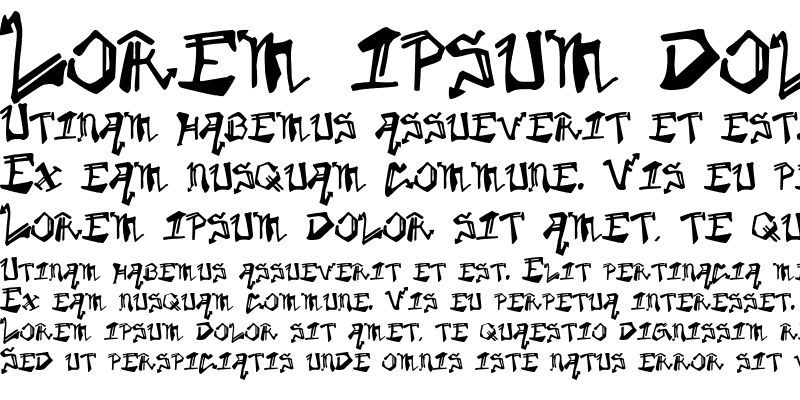 Lorem ipsum dol
Utinam habemus assueverit et est.
Ex eam nusquam commune. Vis eu pe
Lorem ipsum dolor sit amet, te qu
Utinam habemus assueverit et est. Elit pertinacia me
Ex eam nusquam commune. Vis eu perpetua interesset.
Lorem ipsum dolor sit amet, te quaestio dignissim r
Sed ut perspiciatis unde omnis iste natus error sit v